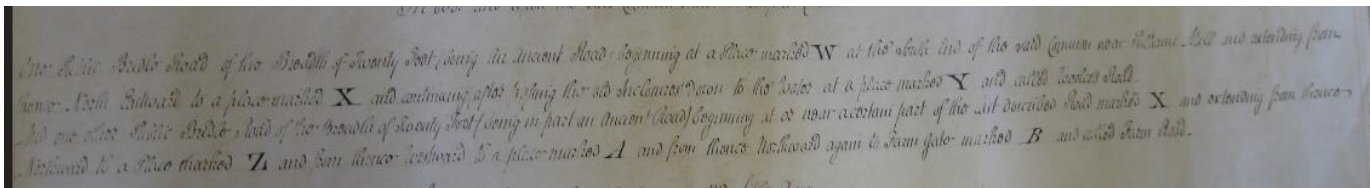 One Public Bridle Road of the Breadth of Twenty Feet (being an Ancient Road) beginning at a Place marked W at the South End of the said Common near Mill and extending from
thence North Eastward to a place marked X and continuing after passing the old Inclosures Down to the Water at a place marked Y and called Road.
And one other Public Bridle Road of the Breadth of Twenty Feet (being in part an Ancient Road) beginning at or near a certain part of the last described Road marked X and extending from thence
Northward to a Place marked Z and from thence Westward to a place marked A and from thence Northward again to Farm gate marked B and called Farm Road.